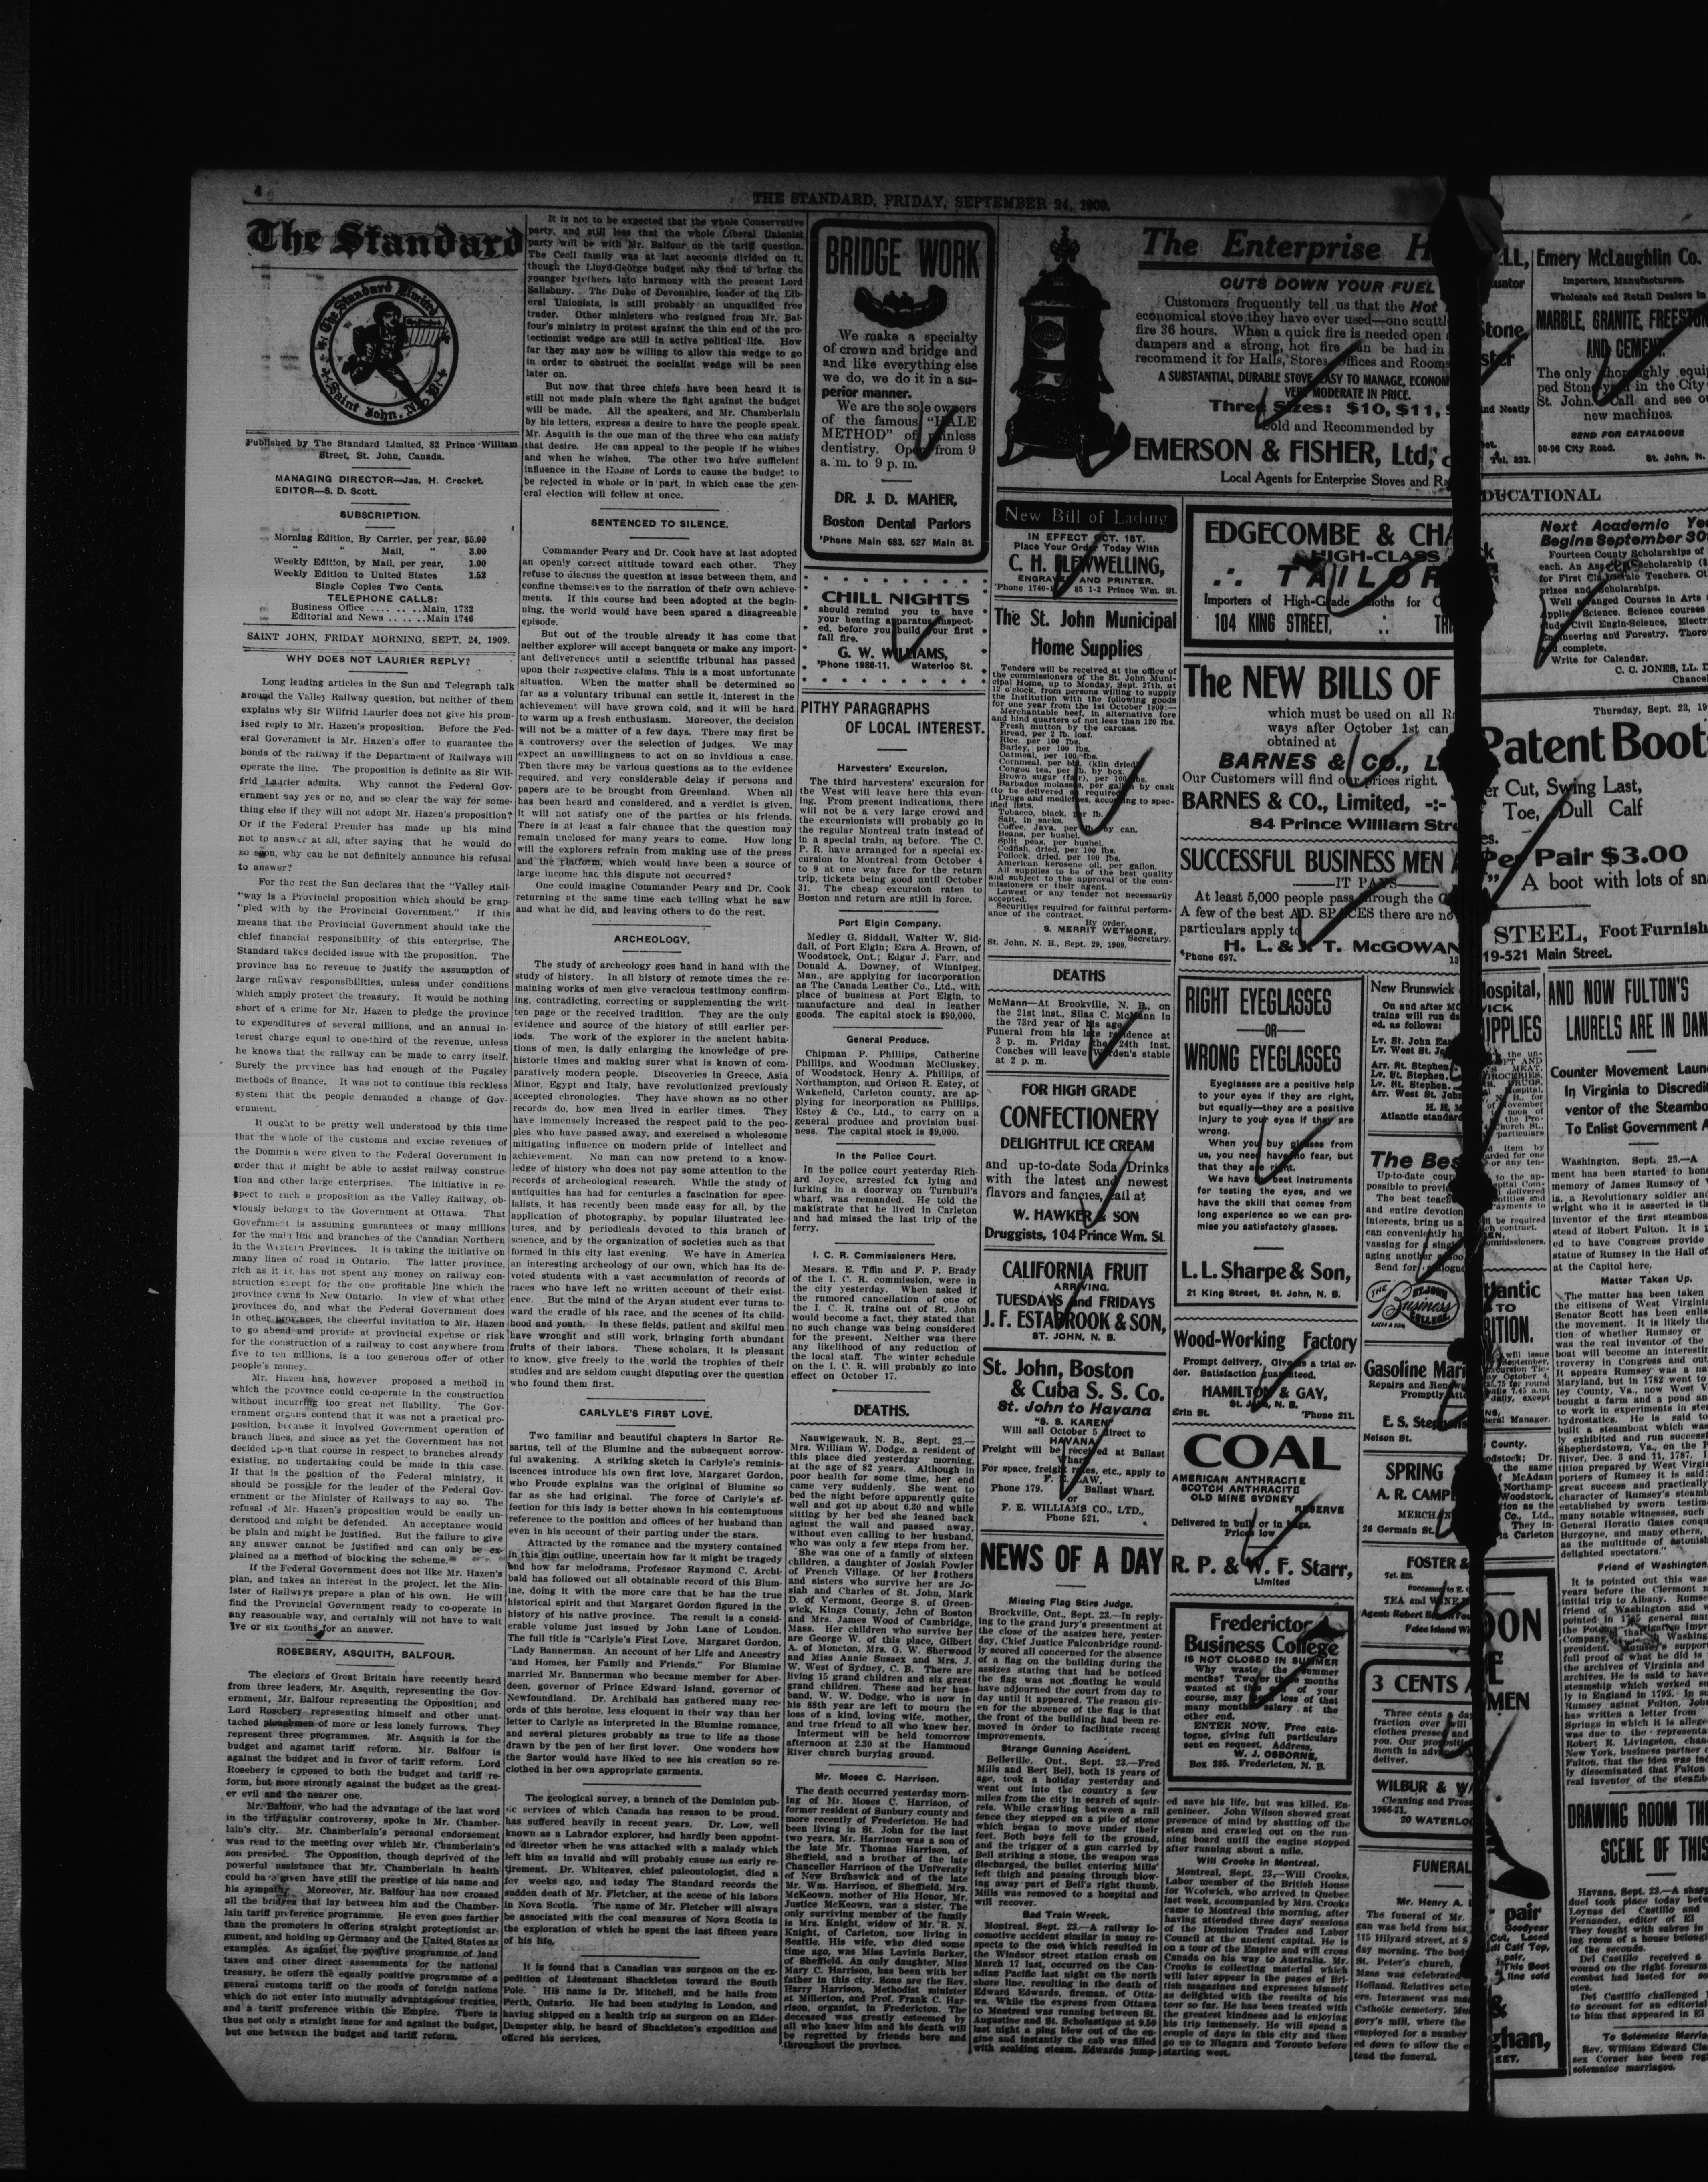 4
THE STANDARD, FRIDAY, SEPTEMBER 24, 1909.
The Standard
The Standard Limited
Saint John, N. B.
Published by The Standard Limited, 82 Prince William
Street, St. John, Canada.
MANAGING DIRECTOR—Jas. H. Crocket.
EDITOR—S. D. Scott.
SUBSCRIPTION.
Morning Edition, By Carrier, per year, $5.00
" " Mail, " 3.00
Weekly Edition, by Mail, per year, 1.00
Weekly Edition to United States 1.52
Single Copies Two Cents.
TELEPHONE CALLS:
Business Office .... .. ..Main, 1722
Editorial and News .. .. ..Main 1746
SAINT JOHN, FRIDAY MORNING, SEPT. 24, 1909.
WHY DOES NOT LAURIER REPLY?
Long leading articles in the Sun and Telegraph talk
around the Valley Railway question, but neither of them
explains why Sir Wilfrid Laurier does not give his prom-
ised reply to Mr. Hazen's proposition. Before the Fed-
eral Government is Mr. Hazen's offer to guarantee the
bonds of the railway if the Department of Railways will
operate the line. The proposition is definite as Sir Wil-
frid Laurier admits. Why cannot the Federal Gov-
ernment say yes or no, and so clear the way for some-
thing else if they will not adopt Mr. Hazen's proposition?
Or if the Federal Premier has made up his mind
not to answer at all, after saying that he would do
so soon, why can he not definitely announce his refusal
to answer?
For the rest the Sun declares that the "Valley Rail-
"way is a Provincial proposition which should be grap-
"pled with by the Provincial Government." If this
means that the Provincial Government should take the
chief financial responsibility of this enterprise, The
Standard takes decided issue with the proposition. The
province has no revenue to justify the assumption of
large railway responsibilities, unless under conditions
which amply protect the treasury. It would be nothing
short of a crime for Mr. Hazen to pledge the province
to expenditures of several millions, and an annual in-
terest charge equal to one-third of the revenue, unless
he knows that the railway can be made to carry itself.
Surely the province has had enough of the Pugsley
methods of finance. It was not to continue this reckless
system that the people demanded a change of Gov-
ernment.
It ought to be pretty well understood by this time
that the whole of the customs and excise revenues of
the Dominion were given to the Federal Government in
order that it might be able to assist railway construc-
tion and other large enterprises. The initiative in re-
spect to such a proposition as the Valley Railway, ob-
viously belongs to the Government at Ottawa. That
Government is assuming guarantees of many millions
for the main line and branches of the Canadian Northern
in the Western Provinces. It is taking the initiative on
many lines of road in Ontario. The latter province,
rich as it is, has not spent any money on railway con-
struction except for the one profitable line which the
province owns in New Ontario. In view of what other
provinces do, and what the Federal Government does
in other provinces, the cheerful invitation to Mr. Hazen
to go ahead and provide at provincial expense or risk
for the construction of a railway to cost anywhere from
five to ten millions, is a too generous offer of other
people's money.
Mr. Hazen has, however proposed a method in
which the province could co-operate in the construction
without incurring too great net liability. The Gov-
ernment organs contend that it was not a practical pro-
position, because it involved Government operation of
branch lines, and since as yet the Government has not
decided upon that course in respect to branches already
existing, no undertaking could be made in this case.
If that is the position of the Federal ministry, it
should be possible for the leader of the Federal Gov-
ernment or the Minister of Railways to say so. The
refusal of Mr. Hazen's proposition would be easily un-
derstood and might be defended. An acceptance would
be plain and might be justified. But the failure to give
any answer cannot be justified and can only be ex-
plained as a method of blocking the scheme.
If the Federal Government does not like Mr. Hazen's
plan, and takes an interest in the project, let the Min-
ister of Railways prepare a plan of his own. He will
find the Provincial Government ready to co-operate in
any reasonable way, and certainly will not have to wait
five or six months for an answer.
ROSEBERY, ASQUITH, BALFOUR.
The electors of Great Britain have recently heard
from three leaders, Mr. Asquith, representing the Gov-
ernment, Mr. Balfour representing the Opposition; and
Lord Rosebery representing himself and other unat-
tached ploughmen of more or less lonely furrows. They
represent three programmes. Mr. Asquith is for the
budget and against tariff reform. Mr. Balfour is
against the budget and in favor of tariff reform. Lord
Rosebery is opposed to both the budget and tariff re-
form, but more strongly against the budget as the great-
er evil and the nearer one.
Mr. Balfour, who had the advantage of the last word
in the triangular controversy, spoke in Mr. Chamber-
lain's city. Mr. Chamberlain's personal endorsement
was read to the meeting over which Mr. Chamberlain's
son presided. The Opposition, though deprived of the
powerful assistance that Mr. Chamberlain in health
could have given have still the prestige of his name and
his sympathy. Moreover, Mr. Balfour has now crossed
all the bridges that lay between him and the Chamber-
lain tariff preference programme. He even goes farther
than the promoters in offering straight protectionist ar-
gument, and holding up Germany and the United States as
examples. As against the positive programme of land
taxes and other direct assessments for the national
treasury, he offers the equally positive programme of a
general customs tariff on the goods of foreign nations
which do not enter into mutually advantageous treaties,
and a tariff preference within the Empire. There is
thus not only a straight issue for and against the budget,
but one between the budget and tariff reform.
It is not to be expected that the whole Conservative
party, and still less that the whole Liberal Unionist
party will be with Mr. Balfour on the tariff question.
The Cecil family was at last accounts divided on it,
though the Lloyd-George budget may tend to bring the
younger brethern into harmony with the present Lord
Salisbury. The Duke of Devonshire, leader of the Lib-
eral Unionists, is still probably an unqualified free
trader. Other ministers who resigned from Mr. Bal-
four's ministry in protest against the thin end of the pro-
tectionist wedge are still in active political life. How
far they may now be willing to allow this wedge to go
in order to obstruct the socialist wedge will be seen
later on.
But now that three chiefs have been heard it is
still not made plain where the fight against the budget
will be made. All the speakers, and Mr. Chamberlain
by his letters, express a desire to have the people speak.
Mr. Asquith is the one man of the three who can satisfy
that desire. He can appeal to the people if he wishes
and when he wishes. The other two have sufficient
influence in the House of Lords to cause the budget to
be rejected in whole or in part, in which case the gen-
eral election will follow at once.
SENTENCED TO SILENCE.
Commander Peary and Dr. Cook have at last adopted
an openly correct attitude toward each other. They
refuse to discuss the question at issue between them, and
confine themselves to the narration of their own achieve-
ments. If this course had been adopted at the begin-
ning, the world would have been spared a disagreeable
episode.
But out of the trouble already it has come that
neither explorer will accept banquets or make any import-
ant deliverences until a scientific tribunal has passed
upon their respective claims. This is a most unfortunate
situation. When the matter shall be determined so
far as a voluntary tribunal can settle it, interest in the
achievement will have grown cold, and it will be hard
to warm up a fresh enthusiasm. Moreover, the decision
will not be a matter of a few days. There may first be
a controversy over the selection of judges. We may
expect an unwillingness to act on so invidious a case.
Then there may be various questions as to the evidence
required, and very considerable delay if persons and
papers are to be brought from Greenland. When all
has been heard and considered, and a verdict is given,
it will not satisfy one of the parties or his friends.
There is at least a fair chance that the question may
remain unclosed for many years to come. How long
will the explorers refrain from making use of the press
and the platform, which would have been a source of
large income had this dispute not occurred?
One could imagine Commander Peary and Dr. Cook
returning at the same time each telling what he saw
and what he did, and leaving others to do the rest.
ARCHEOLOGY.
The study of archeology goes hand in hand with the
study of history. In all history of remote times the re-
maining works of men give veracious testimony confirm-
ing, contradicting, correcting or supplementing the writ-
ten page or the received tradition. They are the only
evidence and source of the history of still earlier per-
iods. The work of the explorer in the ancient habita-
tions of men, is daily enlarging the knowledge of pre-
historic times and making surer what is known of com-
paratively modern people. Discoveries in Greece, Asia
Minor, Egypt and Italy, have revolutionized previously
accepted chronologies. They have shown as no other
records do, how men lived in earlier times. They
have immensely increased the respect paid to the peo-
ples who have passed away, and exercised a wholesome
mitigating influence on modern pride of intellect and
achievement. No man can now pretend to a know-
ledge of history who does not pay some attention to the
records of archeological research. While the study of
antiquities has had for centuries a fascination for spec-
ialists, it has recently been made easy for all, by the
application of photography, by popular illustrated lec-
tures, and by periodicals devoted to this branch of
science, and by the organization of societies such as that
formed in this city last evening. We have in America
an interesting archeology of our own, which has its de-
voted students with a vast accumulation of records of
races who have left no written account of their exist-
ence. But the mind of the Aryan student ever turns to-
ward the cradle of his race, and the scenes of its child-
hood and youth. In these fields, patient and skilful men
have wrought and still work, bringing forth abundant
fruits of their labors. These scholars, it is pleasant
to know, give freely to the world the trophies of their
studies and are seldom caught disputing over the question
who found them first.
CARLYLE'S FIRST LOVE.
Two familiar and beautiful chapters in Sartor Re-
sartus, tell of the Blumine and the subsequent sorrow-
ful awakening. A striking sketch in Carlyle's reminis-
iscences introduce his own first love, Margaret Gordon,
who Froude explains was the original of Blumine so
far as she had original. The force of Carlyle's af-
fection for this lady is better shown in his contemptuous
reference to the position and offices of her husband than
even in his account of their parting under the stars.
Attracted by the romance and the mystery contained
in this dim outline, uncertain how far it might be tragedy
and how far melodrama, Professor Raymond C. Archi-
bald has followed out all obtainable record of this Blum-
ine, doing it with the more care that he has the true
historical spirit and that Margaret Gordon figured in the
history of his native province. The result is a consid-
erable volume just issued by John Lane of London.
The full title is "Carlyle's First Love. Margaret Gordon,
"Lady Bannerman. An account of her Life and Ancestry
"and Homes, her Family and Friends." For Blumine
married Mr. Bannerman who became member for Aber-
deen, governor of Prince Edward Island, governor of
Newfoundland. Dr. Archibald has gathered many rec-
ords of this heroine, less eloquent in their way than her
letter to Carlyle as interpreted in the Blumine romance,
and several pictures probably as true to life as those
drawn by the pen of her first lover. One wonders how
the Sartor would have liked to see his creation so re-
clothed in her own appropriate garments.
The geological survey, a branch of the Dominion pub-
lic services of which Canada has reason to be proud,
has suffered heavily in recent years. Dr. Low, well
known as a Labrador explorer, had hardly been appoint-
ed director when he was attacked with a malady which
left him an invalid and will probably cause his early re-
tirement. Dr. Whiteaves, chief paleontologist, died a
few weeks ago, and today The Standard records the
sudden death of Mr. Fletcher, at the scene of his labors
in Nova Scotia. The name of Mr. Fletcher will always
be associated with the coal measures of Nova Scotia in
the exploration of which he spent the last fifteen years
of his life.
It is found that a Canadian was surgeon on the ex-
pedition of Lieutenant Shackleton toward the South
Pole. His name is Dr. Mitchell, and he hails from
Perth, Ontario. He had been studying in London, and
having shipped on a health trip as surgeon on an Elder-
Dempster ship, he heard of Shackleton's expedition and
offered his services.
BRIDGE WORK
We make a specialty
of crown and bridge and
and like everything else
we do, we do it in a su-
perior manner.
We are the sole owners
of the famous "HALE
METHOD" of painless
dentistry. Open from 9
a. m. to 9 p. m.
DR. J. D. MAHER,
Boston Dental Parlors
'Phone Main 683. 527 Main St.
CHILL NIGHTS
should remind you to have
your heating apparatus inspect-
ed, before you build your first
fall fire.
G. W. WILLIAMS,
'Phone 1986-11. Waterloo St.
PITHY PARAGRAPHS
OF LOCAL INTEREST.
Harvesters' Excursion.
The third harvesters' excursion for
the West will leave here this even-
ing. From present indications, there
will not be a very large crowd and
the excursionists will probably go in
the regular Montreal train instead of
in a special train, as before. The C.
P. R. have arranged for a special ex-
cursion to Montreal from October 4
to 9 at one way fare for the return
trip, tickets being good until October
31. The cheap excursion rates to
Boston and return are still in force.
Port Elgin Company.
Medley G. Siddall, Walter W. Sid-
dall, of Port Elgin; Ezra A. Brown, of
Woodstock, Ont.; Edgar J. Farr, and
Donald A. Downey, of Winnipeg,
Man., are applying for incorporation
as The Canada Leather Co., Ltd., with
place of business at Port Elgin, to
manufacture and deal in leather
goods. The capital stock is $90,000.
General Produce.
Chipman P. Phillips, Catherine
Phillips, and Woodman McCluskey,
of Woodstock, Henry A. Phillips, of
Northampton, and Orison R. Estey, of
Wakefield, Carleton county, are ap-
plying for incorporation as Phillips,
Estey & Co., Ltd., to carry on a
general produce and provision busi-
ness. The capital stock is $9,000.
In the Police Court.
In the police court yesterday Rich-
ard Joyce, arrested for lying and
lurking in a doorway on Turnbull's
wharf, was remanded. He told the
makistrate that he lived in Carleton
and had missed the last trip of the
ferry.
I. C. R. Commissioners Here.
Messrs. E. Tiffin and F. P. Brady
of the I. C. R. commission, were in
the city yesterday. When asked if
the rumored cancellation of one of
the I. C. R. trains out of St. John
would become a fact, they stated that
no such change was being considered
for the present. Neither was there
any likelihood of any reduction of
the local staff. The winter schedule
on the I. C. R. will probably go into
effect on October 17.
DEATHS.
Nauwigewauk, N. B., Sept. 23.—
Mrs. William W. Dodge, a resident of
this place died yesterday morning,
at the age of 82 years. Although in
poor health for some time, her end
came very suddenly. She went to
bed the night before apparently quite
well and got up about 6.30 and while
sitting by her bed she leaned back
aginst the wall and passed away,
without even calling to her husband,
who was only a few steps from her.
She was one of a family of sixteen
children, a daughter of Josiah Fowler
of French Village. Of her brothers
and sisters who survive her are Jo-
siah and Charles of St. John, Mark
D. of Vermont, George S. of Green-
wick, Kings County, John of Boston
and Mrs. James Wood of Cambridge,
Mass. Her children who survive her
are George W. of this place, Gilbert
A. of Moncton, Mrs. G. W. Sherwood
and Miss Annie Sussex and Mrs. J.
W. West of Sydney, C. B. There are
living 15 grand children and six great
grand children. These and her hus-
band, W. W. Dodge, who is now in
his 88th year are left to mourn the
loss of a kind, loving wife, mother,
and true friend to all who knew her.
Interment will be held tomorrow
afternoon at 2.30 at the Hammond
River church burying ground.
Mr. Moses C. Harrison.
The death occurred yesterday morn-
ing of Mr. Moses C. Harrison, of
former resident of Sunbury county and
more recently of Fredericton. He had
been living in St. John for the last
two years. Mr. Harrison was a son of
the late Mr. Thomas Harrison, of
Sheffield, and a brother of the late
Chancellor Harrison of the University
of New Brunswick and of the late
Mr. Wm. Harrison, of Sheffield. Mrs.
McKeown, mother of His Honor, Mr.
Justice McKeown, was a sister. The
only surviving member of the family
is Mrs. Knight, widow of Mr. R. N.
Knight, of Carleton, now living in
Seattle. His wife, who died some
time ago, was Miss Lavinia Barker,
of Sheffield. An only daughter, Miss
Mary C. Harrison, has been with her
father in this city. Sons are the Rev.
Harry Harrison, Methodist minister
at Millerton, and Prof. Frank C. Har-
rison, organist, in Fredericton. The
deceased was greatly esteemed by
all who knew him and his death will
be regretted by friends here and
throughout the province.
The Enterprise H
CUTS DOWN YOUR FUEL
Customers frequently tell us that the Hot
economical stove they have ever used—one scuttl
fire 36 hours. When a quick fire is needed open
dampers and a strong, hot fire can be had in
recommend it for Halls, Stores, Offices and Rooms
A SUBSTANTIAL, DURABLE STOVE, EASY TO MANAGE, ECONOM
VERY MODERATE IN PRICE.
Three Sizes: $10, $11, $
Sold and Recommended by
EMERSON & FISHER, Ltd.,
Local Agents for Enterprise Stoves and Ra
New Bill of Lading
IN EFFECT OCT. 1ST.
Place Your Order Today With
C. H. FLEWWELLING,
ENGRAVER AND PRINTER,
'Phone 1740- 85 1-2 Prince Wm. St.
The St. John Municipal
Home Supplies
Tenders will be received at the office of
the commissioners of the St. John Muni-
cipal Home, up to Monday, Sept. 27th, at
12 o'clock, from persons willing to supply
the Institution with the following goods
for one year from the 1st October 1909:—
Merchantable beef, in alternative fore
and hind quarters of not less than 120 lbs.
Fresh mutton by the carcass.
Bread, per 2 lb. loaf.
Rice, per 100 lbs.
Barley, per 100 lbs.
Oatmeal, per 100 lbs.
Cornmeal, per bbl. (kiln dried)
Congou tea, per lb. by box.
Brown sugar (fair), per 100 lbs.
Barbados molasses, per gallon by cask
(to be delivered as required)
Drugs and medicines, according to spec-
ified lists.
Tobacco, black, per lb.
Salt, in sacks.
Coffee, Java, per lb. by can.
Beans, per bushel.
Split peas, per bushel.
Codfish, dried, per 100 lbs.
Pollock, dried, per 100 lbs.
American kerosene oil, per gallon.
All supplies to be of the best quality
and subject to the approval of the com-
missioners or their agent.
Lowest or any tender not necessarily
accepted.
Securities required for faithful perform-
ance of the contract.
By order,
S. MERRIT WETMORE,
Secretary.
St. John, N. B., Sept. 29, 1909.
DEATHS
McMann—At Brookville, N. B., on
the 21st inst., Silas C. McMann in
the 73rd year of his age.
Funeral from his late residence at
3 p. m. Friday the 24th inst.
Coaches will leave Worden's stable
at 2 p. m.
FOR HIGH GRADE
CONFECTIONERY
DELIGHTFUL ICE CREAM
and up-to-date Soda Drinks
with the latest and newest
flavors and fancies, call at
W. HAWKER & SON
Druggists, 104 Prince Wm. St.
CALIFORNIA FRUIT
ARRIVING
TUESDAYS and FRIDAYS
J. F. ESTABROOK & SON,
ST. JOHN, N. B.
St. John, Boston
& Cuba S. S. Co.
St. John to Havana
"S. S. KAREN"
Will sail October 5 direct to
HAVANA
Freight will be received at Ballast
Wharf
For space, freight rates, etc., apply to
F. E. LAW,
Phone 179. Ballast Wharf.
or
F. E. WILLIAMS CO., LTD.,
Phone 521.
NEWS OF A DAY
Missing Flag Stirs Judge.
Brockville, Ont., Sept. 23.—In reply-
ing to the grand jury's presentment at
the close of the assizes here, yester-
day, Chief Justice Falconbridge round-
ly scored all concerned for the absence
of a flag on the building during the
assizes stating that had he noticed
the flag was not floating he would
have adjourned the court from day to
day until it appeared. The reason giv-
en for the absence of the flag is that
the front of the building had been re-
moved in order to facilitate recent
improvements.
Strange Gunning Accident.
Belleville, Ont., Sept. 23.—Fred
Mills and Bert Bell, both 18 years of
age, took a holiday yesterday and
went out into the country a few
miles from the city in search of squir-
rels. While crawling between a rail
fence they stepped on a pile of stone
which began to move under their
feet. Both boys fell to the ground,
and the trigger of a gun carried by
Bell striking a stone, the weapon was
discharged, the bullet entering Mills'
left thigh and passing through blow-
ing away part of Bell's right thumb.
Mills was removed to a hospital and
will recover.
Bad Train Wreck.
Montreal, Sept. 23.—A railway lo-
comotive accident similar in many re-
spects to the one which resulted in
the Windsor street station crash on
March 17 last, occurred on the Can-
adian Pacific last night on the north
shore line, resulting in the death of
Edward Edwards, fireman, of Otta-
wa. While the express from Ottawa
to Montreal was running between St.
Augustine and St. Scholastique at 9.50
last night a plug blew out of the en-
gine and instantly the cab was filled
with scalding steam. Edwards jump-
EDGECOMBE & CHA
HIGH-CLASS
TAILOR
Importers of High-Grade Cloths for
104 KING STREET,
The NEW BILLS OF
which must be used on all R
ways after October 1st can
obtained at
BARNES & CO., L
Our Customers will find our prices right.
BARNES & CO., Limited, -:-
84 Prince William Stre
SUCCESSFUL BUSINESS MEN A
—IT PAYS—
At least 5,000 people pass through the
A few of the best AD. SPACES there are no
particulars apply to
H. L. & J. T. McGOWAN
'Phone 697.
RIGHT EYEGLASSES
—OR—
WRONG EYEGLASSES
Eyeglasses are a positive help
to your eyes if they are right,
but equally—they are a positive
injury to your eyes if they are
wrong.
When you buy glasses from
us, you need have no fear, but
that they are right.
We have best instruments
for testing the eyes, and we
have the skill that comes from
long experience so we can pro-
mise you satisfactory glasses.
L. L. Sharpe & Son,
21 King Street, St. John, N. B.
Wood-Working Factory
Prompt delivery. Give us a trial or-
der. Satisfaction guaranteed.
HAMILTON & GAY,
St. John, N. B.
Erin St. 'Phone 211.
COAL
AMERICAN ANTHRACITE
SCOTCH ANTHRACITE
OLD MINE SYDNEY
RESERVE
Delivered in bulk or in bags.
Prices low
R. P. & W. F. Starr,
Limited
Fredericton
Business College
IS NOT CLOSED IN SUMMER
Why waste the summer
months? Two or three months
wasted at the end of your
course, may loss of that
many months' salary at the
other end.
ENTER NOW. Free cata-
logue, giving full particulars
sent on request. Address,
W. J. OSBORNE,
Box 285. Fredericton, N. B.
ed save his life, but was killed. En-
gineer John Wilson showed great
presence of mind by shutting off the
steam and crawled out on the run-
ning board until the engine stopped
after running about a mile.
Will Crooks in Montreal.
Montreal, Sept. 23.—Will Crooks,
Labor member of the British House
for Wcolwich, who arrived in Quebec
last week, accompanied by Mrs. Crooks
came to Montreal this morning, after
having attended three days' sessions
of the Dominion Trades and Labor
Council at the ancient capital. He is
on a tour of the Empire and will cross
Canada on his way to Australia. Mr.
Crooks is collecting material which
will later appear in the pages of Bri-
tish magazines and expresses himself
as delighted with the results of his
tour so far. He has been treated with
the greatest kindness and is enjoying
his trip immensely. He will spend a
couple of days in this city and then
go up to Niagara and Toronto before
starting west.
New Brunswick
On and after MO
trains will run da
ed, as follows:
Lv. St. John Ea
Lv. West St. Jo
Arr. St. Stephen
Lv. St. Stephen
Lv. St. Stephen
Arr. West St. Joh
H. H. M
Atlantic standard
The Bes
Up-to-date cour
possible to provid
The best teach
and entire devotion
interests, bring us a
can conveniently ha
vassing for a singl
aging another
Send for
THE ST. JOHN
Business
COLLEGE
Gasoline Mari
Repairs and Renew
Promptly
E. S. Steph
Nelson St.
SPRING
A. R. CAMP
MERCHAN
26 Germain St.
FOSTER &
TEA and WINE
3 CENTS A
Three cents a day
fraction over will
clothes pressed and
you. Our proposi
month in adva
deliver.
WILBUR & WA
Cleaning and Press
1986-31.
20 WATERLOO
FUNERAL
Mr. Henry A.
The funeral of Mr.
gan was held from his
115 Hilyard street, at 8
day morning. The body
St. Peter's church,
Mass was celebrated
Holland. Relatives acte
ers. Interment was ma
Catholic cemetery.
gory's mill, where the
employed for a number
ed down to allow the e
tend the funeral.
Emery McLaughlin Co.
Importers, Manufacturers,
Wholesale and Retail Dealers in
MARBLE, GRANITE, FREESTON
AND CEMENT.
The only thoroughly equip
ped Stone-yard in the City
St. John. Call and see ou
new machines.
SEND FOR CATALOGUE
90-96 City Road. St. John, N.
DUCATIONAL
Next Academic Yea
Begins September 30
Fourteen County Scholarships of
each. An Asa Scholarship ($
for First Class Male Teachers. Ot
prizes and Scholarships.
Well arranged Courses in Arts
Applied Science. Science courses
clude Civil Engin-Science, Electri
Engineering and Forestry. Thoro
and complete.
Write for Calendar.
C. C. JONES, LL. D
Chancel
Thursday, Sept. 23, 19
Patent Boot
er Cut, Swing Last,
Toe, Dull Calf
Per Pair $3.00
A boot with lots of sna
STEEL, Foot Furnish
19-521 Main Street.
AND NOW FULTON'S
LAURELS ARE IN DAN
Counter Movement Laun
In Virginia to Discredi
ventor of the Steambo
To Enlist Government A
Washington, Sept. 23.—A
ment has been started to hono
memory of James Rumsey of V
ia, a Revolutionary soldier an
wright who it is asserted is th
inventor of the first steamboa
stead of Robert Fulton. It is
ed to have Congress provide
statue of Rumsey in the Hall of
at the Capitol here.
Matter Taken Up.
The matter has been taken
the citizens of West Virginia
Senator Scott has been
the movement. It is likely the
tion of whether Rumsey or
was the real inventor of the
boat will become an interestin
troversy in Congress and out
It appears Rumsey was a na
Maryland, but in 1782 went to
ley County, Va., now West V
bought a farm and a pond an
to work in experiments in ste
hydrostatics. He is said to
built a steamboat which was
ly exhibited and run successf
Shepherdstown, Va., on the P
River, Dec. 3 and 11, 1787.
tition prepared by West Virgi
porters of Rumsey it is said
great success and practically
character of Rumsey's steamb
established by sworn testim
many notable witnesses, such
General Horatio Gates conqu
Burgoyne, and many others,
as the multitude of astonish
delighted spectators."
Friend of Washington.
It is pointed out this was
years before the Clermont
initial trip to Albany. Rumse
friend of Washington and w
DRAWING ROOM TH
SCENE OF THIS
Havana, Sept. 23.—A sharp
duel took place today betw
Loynas del Castillo and
Fernandez, editor of El
They fought with sabres in
ing room of a house belongi
of the seconds.
Del Castillo received a
wound on the right forearm
combat had lasted for
utes.
Del Castillo challenged
to account for an editorial
to him that appeared in El
To Solemnize Marria
Rev. William Edward Cla
sex Corner has been reg
solemnize marriages.